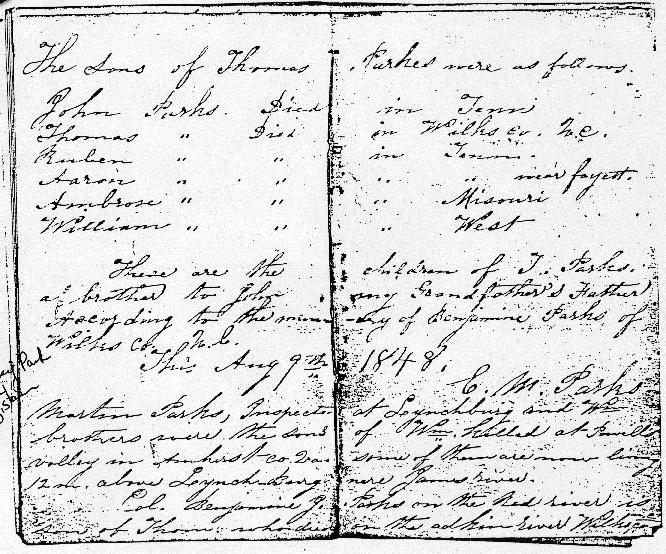 The sons of Thomas Parkes were as follows.
John Parks. Died in Tenn
Thomas " Died in Wilks co. N.C.
Ruben " " in Tenn.
Aaron " " " " near fayett.
Ambrose " " " Misouri
William " " " West
These are the children of T. Parks.
a brother to John my Grandfather's Father
According to the memory of Benjamine Parks of
Wilks Co. N.C.
This Aug 9th 1848.
C. M. Parks
Martin Parks, Inspecto at Loynchburg and Wm
brothers were the sons of Wm. Killed at
valley in Amherst co Va. some of them are now
12 m. above Loynch Burg nere James river.
Col. Benjamine J. Parks on the Red river is
son of Thom. who died on the adkin river Wilks co